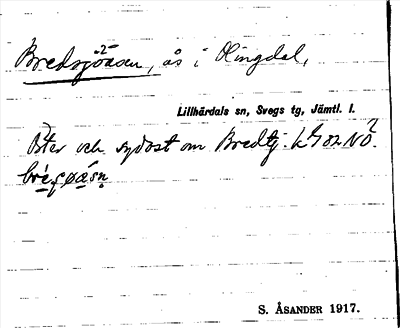 Bredsjöåsen, ås i Olingdal,
Lillhärdals sn, Svegs tg, Jämtl. l.
Öster och sydost om Bredtj.
S. ÅSANDER 1917.